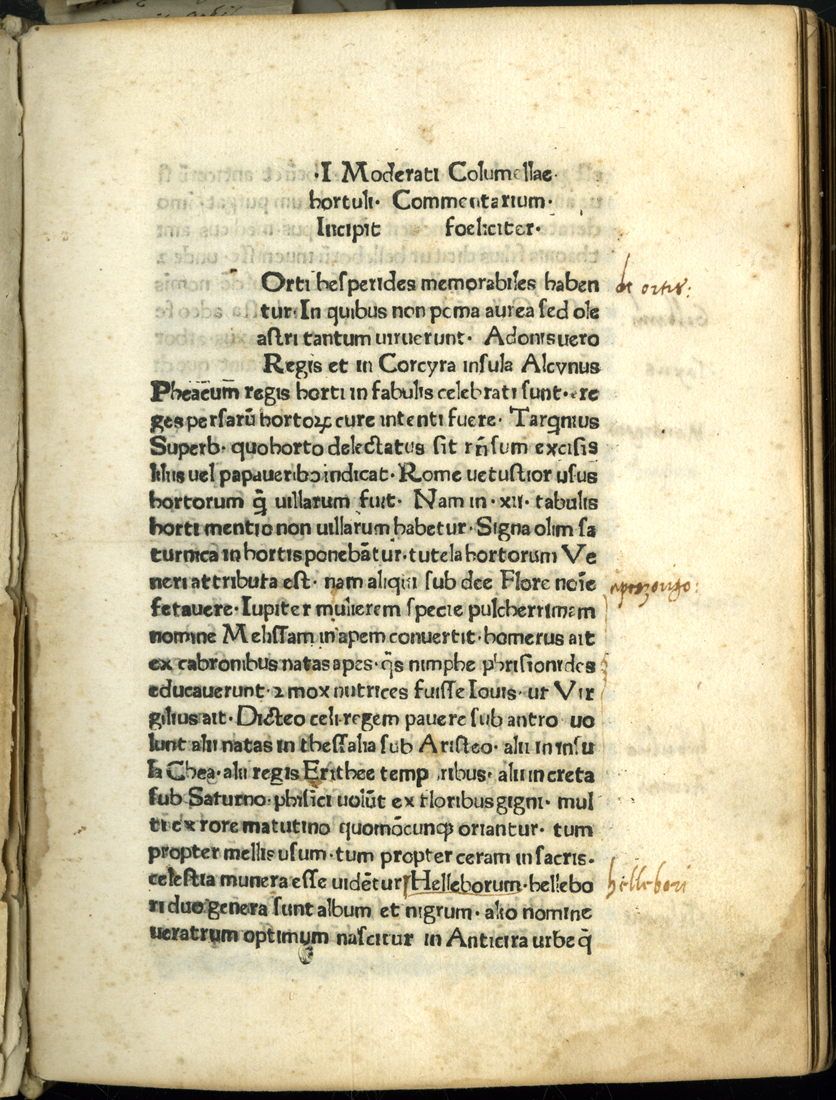 ·I Moderati Columellae·
hortuli· Commentarium·
Incipit foeliciter·
Orti hesperides memorabiles haben
tur· In quibus non poma aurea sed ole
astri tantum uiruerunt· Adonis uero
Regis et in Corcyra insula Alcynus
Pheacum regis horti in fabulis celebrati sunt· re
ges persarū hortoꝝ cure intenti fuere· Tarqnius
Superb· quo horto delectatus sit rñsum excisis
liliis uel papaueribɔ indicat· Rome uetustior usus
hortorum q̄ uillarum fuit· Nam in·xii·tabulis
horti mentio non uillarum habetur· Signa olim sa
turnica in hortis ponebātur·tutela hortorum Ve
neri attributa est· nam aliqui sub dee Flore noīe
fetauere· Iupiter mulierem specie pulcherrimam
nomine Melissam in apem conuertit·homerus ait
ex cabronibus natas apes·q̄s nimphe phrisionides
educauerunt·⁊ mox nutrices fuisse Iouis· ur Vir
gilius ait· Dicteo celi regem pauere sub antro uo
lunt alii natas in thessalia sub Aristeo· alii in insu
la Chea·alii regis Erithee temp ribus· alii in creta
sub Saturno·phisici uolūt ex floribus gigni· mul
ti ex rore matutino quomōcunqꝫ oriantur· tum
propter mellis usum·tum propter ceram in sacris·
celestia munera esse uidētur Helleborum·hellebo
ri duo genera sunt album et nigrum· alio nomine
ueratrum optimum nascitur in Anticira urbe q̄
de ortis:
hellebori